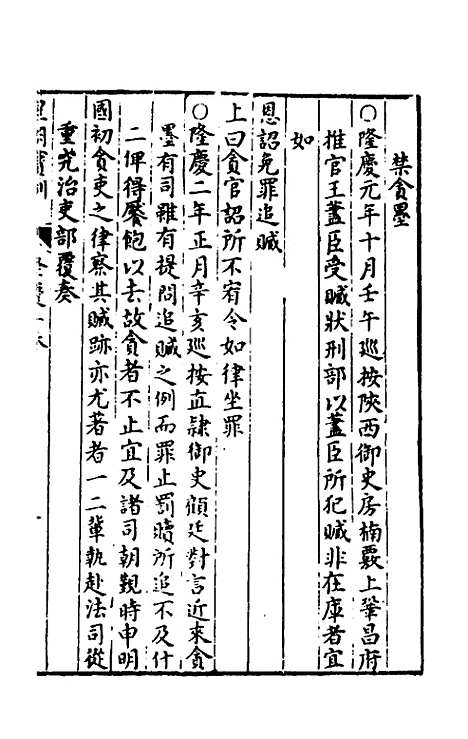 禁貪墨
○隆慶元年十月壬午巡按陝西御史房楠覈上鞏昌府
推官王藎臣受贓狀刑部以藎臣所犯贓非在庫者宜
如
恩詔免罪追贓
上曰貪官詔所不宥令如律坐罪
○隆慶二年正月辛亥巡按直隸御史顧廷對言近來貪
墨有司雖有提問追贓之例而罪止罰贖所追不及什
二俾得饜飽以去故貪者不止宜及諸司朝覲時申明
國初貪吏之律察其贓跡亦尤著者一二輩執赴法司從
重究治吏部覆奏